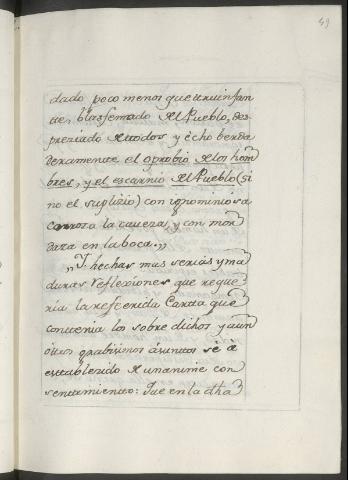 49
dado poco menos que un infan
te, blasfemado del Pueblo, des
preziado de todos y echo berda
deramente el oprobio de los hom
bres, y el escarnio del Pueblo (si
no el suplizio) con ignominiosa
coroza la caveza, y con mor
daza en la boca.„
„I hechas mas serias y ma
duras reflexiones que reque
ría la referida Carta que
contenia los sobre dichos y aun
ótros grabisimos asuntos se à
establezido de unanime con
sentimiento: Que en la dha